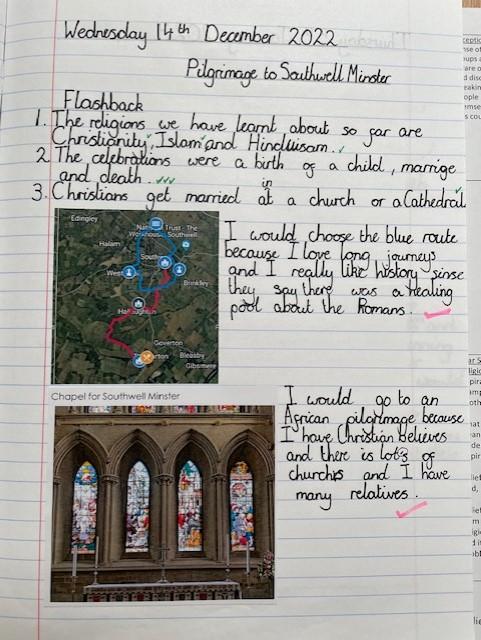 Wednesday 14th December 2022
Pilgrimage to Southwell Minster
Flashback
1. The religions we have learnt about so far are
Christianity, Islam and Hinduisam.
2. The celebrations were a birth of a child, marrige
and death.
3. Christians get married in at a church or a Cathedral.
Edingley
Halam
Trust - The
Southwell
Brinkley
Goverton
Bleasby
Gibsmere
I would choose the blue route
because I love long journeys
and I really like history sinse
they say there was a healing
pool about the Romans.
Chapel for Southwell Minster
I would go to an
African pilgrimage because
I have Christian believes
and there is lots of
churchis and I have
many relatives.